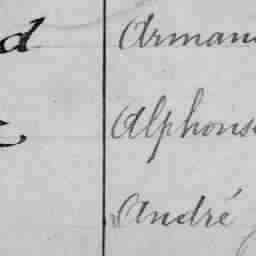 d Arman
Alphons
André